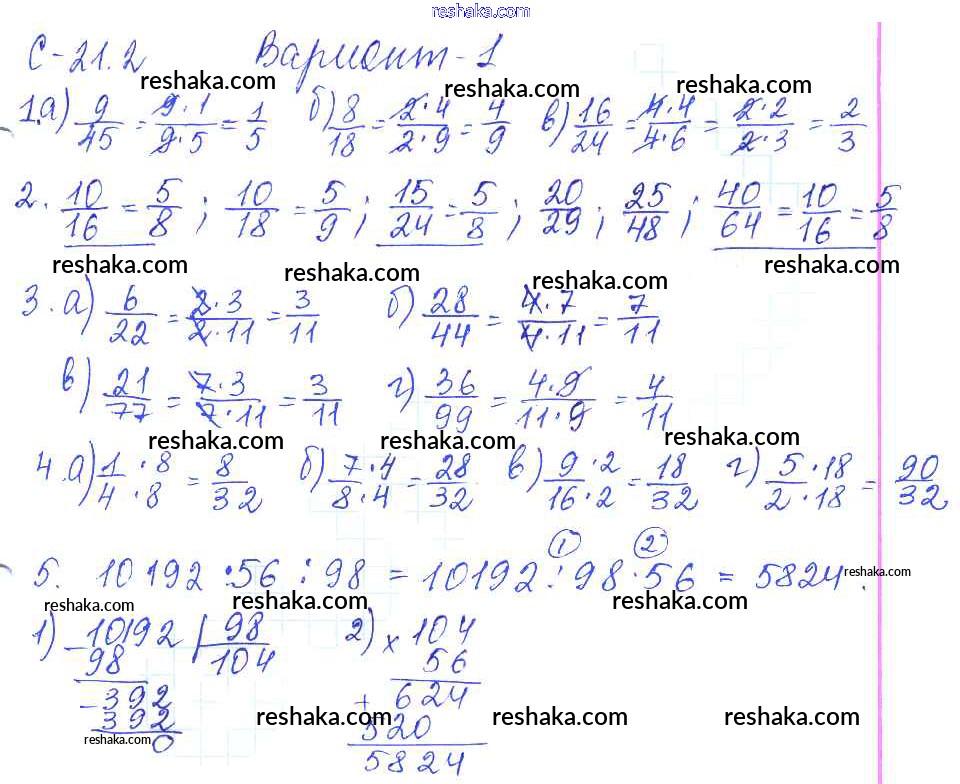 reshaka.com
С-21.2 Вариант-1
reshaka.com reshaka.com reshaka.com
1.а) 9/45 = 9·1/9·5 = 1/5 б) 8/18 = 2·4/2·9 = 4/9 в) 16/24 = 4·4/4·6 = 2·2/2·3 = 2/3
2. 10/16 = 5/8 ; 10/18 = 5/9 ; 15/24 = 5/8 ; 20/29 ; 25/48 ; 40/64 = 10/16 = 5/8
reshaka.com reshaka.com reshaka.com reshaka.com
3. а) 6/22 = 2·3/2·11 = 3/11 б) 28/44 = 4·7/4·11 = 7/11
в) 21/77 = 7·3/7·11 = 3/11 г) 36/99 = 4·9/11·9 = 4/11
reshaka.com reshaka.com reshaka.com
4. а) 1·8/4·8 = 8/32 б) 7·4/8·4 = 28/32 в) 9·2/16·2 = 18/32 г) 5·18/2·18 = 90/32
1 2
5. 10192 : 56 : 98 = 10192 : 98 · 56 = 5824.
reshaka.com
reshaka.com reshaka.com reshaka.com reshaka.com
1) - 10192 | 98 2) × 104
98 104 56
- 392 + 624
392 520
0 5824
reshaka.com reshaka.com reshaka.com reshaka.com